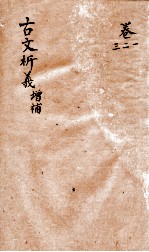 卷一二三
古文析義增補